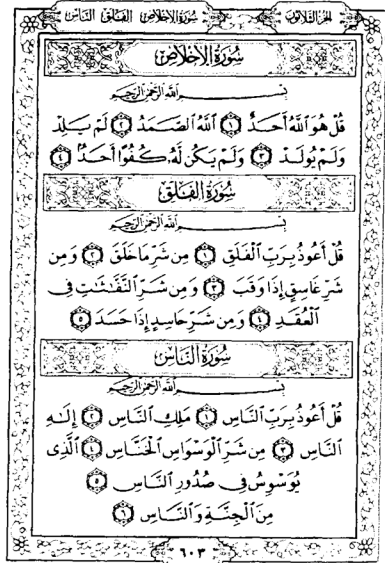 الجزء الثلاثون سورة الإخلاص الفلق الناس
سُورَةُ الإِخْلَاصِ
بِسْمِ اللَّهِ الرَّحْمَٰنِ الرَّحِيمِ
قُلْ هُوَ ٱللَّهُ أَحَدٌ ١ ٱللَّهُ ٱلصَّمَدُ ٢ لَمْ يَلِدْ
وَلَمْ يُولَدْ ٣ وَلَمْ يَكُن لَّهُۥ كُفُوًا أَحَدٌ ٤
سُورَةُ الْفَلَقِ
بِسْمِ اللَّهِ الرَّحْمَٰنِ الرَّحِيمِ
قُلْ أَعُوذُ بِرَبِّ ٱلْفَلَقِ ١ مِن شَرِّ مَا خَلَقَ ٢ وَمِن
شَرِّ غَاسِقٍ إِذَا وَقَبَ ٣ وَمِن شَرِّ ٱلنَّفَّٰثَٰتِ فِى
ٱلْعُقَدِ ٤ وَمِن شَرِّ حَاسِدٍ إِذَا حَسَدَ ٥
سُورَةُ النَّاسِ
بِسْمِ اللَّهِ الرَّحْمَٰنِ الرَّحِيمِ
قُلْ أَعُوذُ بِرَبِّ ٱلنَّاسِ ١ مَلِكِ ٱلنَّاسِ ٢ إِلَٰهِ
ٱلنَّاسِ ٣ مِن شَرِّ ٱلْوَسْوَاسِ ٱلْخَنَّاسِ ٤ ٱلَّذِى
يُوَسْوِسُ فِى صُدُورِ ٱلنَّاسِ ٥
مِنَ ٱلْجِنَّةِ وَٱلنَّاسِ ٦
٦٠٣